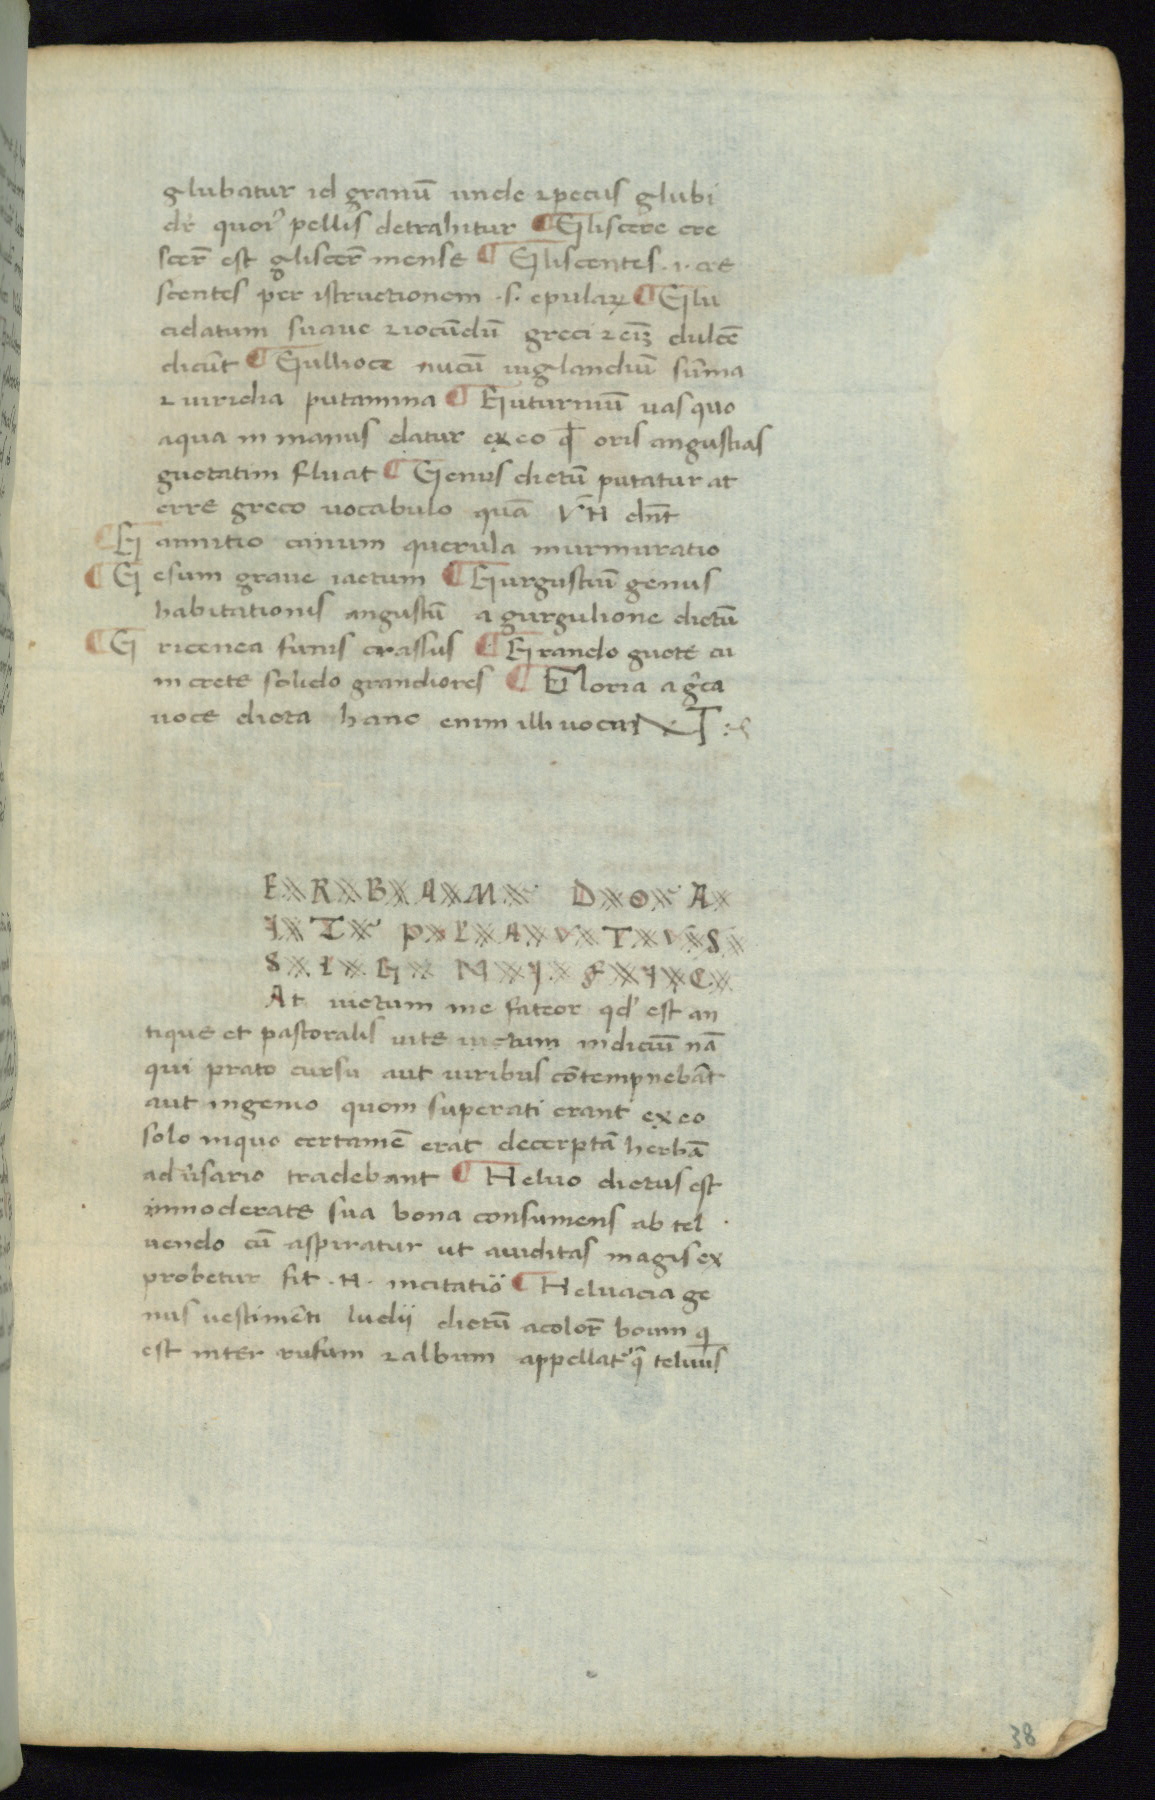 glubatur id granū unde ⁊ pecus glubi
dr̄ quoiꝰ pellis detrahitur ¶ Gliscere cre
scer̄ est gliscer̄ mense ¶ Gliscentes .i. cre
scentes per istructionem .s. epulaꝝ ¶ Glu
cidatum suave ⁊ iocūdū greci ⁊ eiꝫ dulcē
dicūt ¶ Gullioce nucū iuglandiū sūma
⁊ viridia putamina ¶ Guturniū uas quo
aqua in manus datur ex eo ꝙ oris angustias
guttatim fluat ¶ Genus dictū putatur at
erre greco uocabulo quā ΓΗ dn̄t
¶ Gannitio canum querula murmuratio
¶ Gesum grave iactum ¶ Gurgustiū genus
habitationis angustū a gurgulione dictū
¶ Gricenea funis crassus ¶ Grando gutte cu
in crete solido grandiores ¶ Gloria a gr̄ca
voce dicta hanc enim illi vocant
ERBAM DO A
IT PLAVTVS
SIGNIFIC
At uictum me fateor qd' est an
tique et pastoralis uite uictum indiciū nā
qui prato cursu aut uiribus cōtempnebāt
aut ingenio quom superati erant ex eo
solo inquo certamē erat decerptā herbā
adūsario tradebant ¶ Heluo dictus est
immoderate sua bona consumens ab tel
uendo cū aspiratur ut auiditas magis ex
probetur fit .H. incitatiō ¶ Heluacia ge
nus vestimēti ludij dictū a color̄ boum qi
est inter rufum ⁊ album appellatꝰ q̄ teluus
38